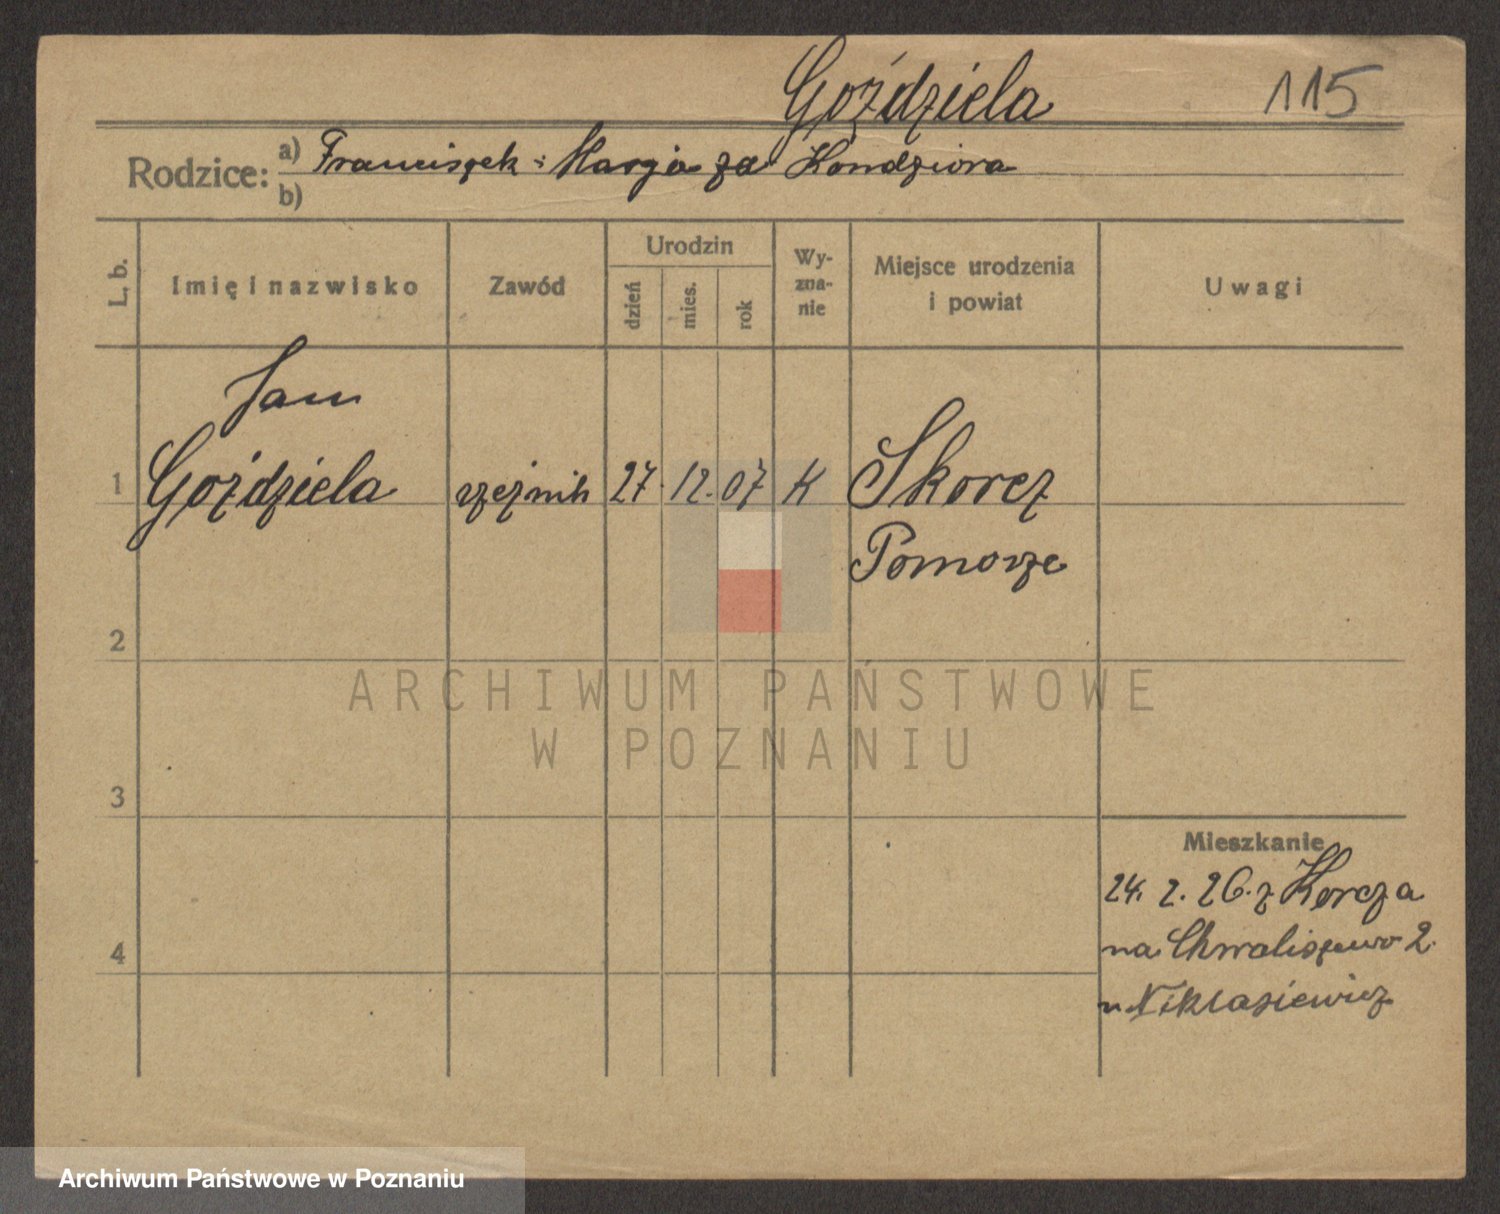 Goździela 115
Rodzice: a) Franciszek i Marja zd Kondziora
b)
L. b. Imię i nazwisko Zawód Urodzin dzień mies. rok Wyznanie Miejsce urodzenia i powiat Uwagi
Jan
1 Goździela rzeźnik 27. 12. 07 K Skorcz
Pomorze
2
ARCHIWUM PAŃSTWOWE
W POZNANIU
3
Mieszkanie
24. 2. 26. z Korcza
4 na Chwaliszewo 2.
u Niklasiewicz
Archiwum Państwowe w Poznaniu